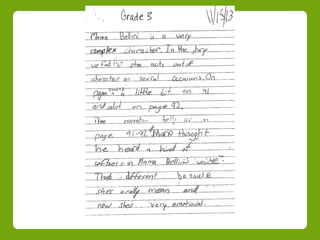 Grade 3 11/15/13
Mama Bellini is a very
complex character. In the story
we find out she acts out of
character on several occasions. On
pages a little bit on 91
and alot on page 92.
The narrator tells us on
page 91-92 "Mario thought
he heard a kind of
softness in Mama Bellini's voice".
That different because
shes usally mean and
now shes very emotional.